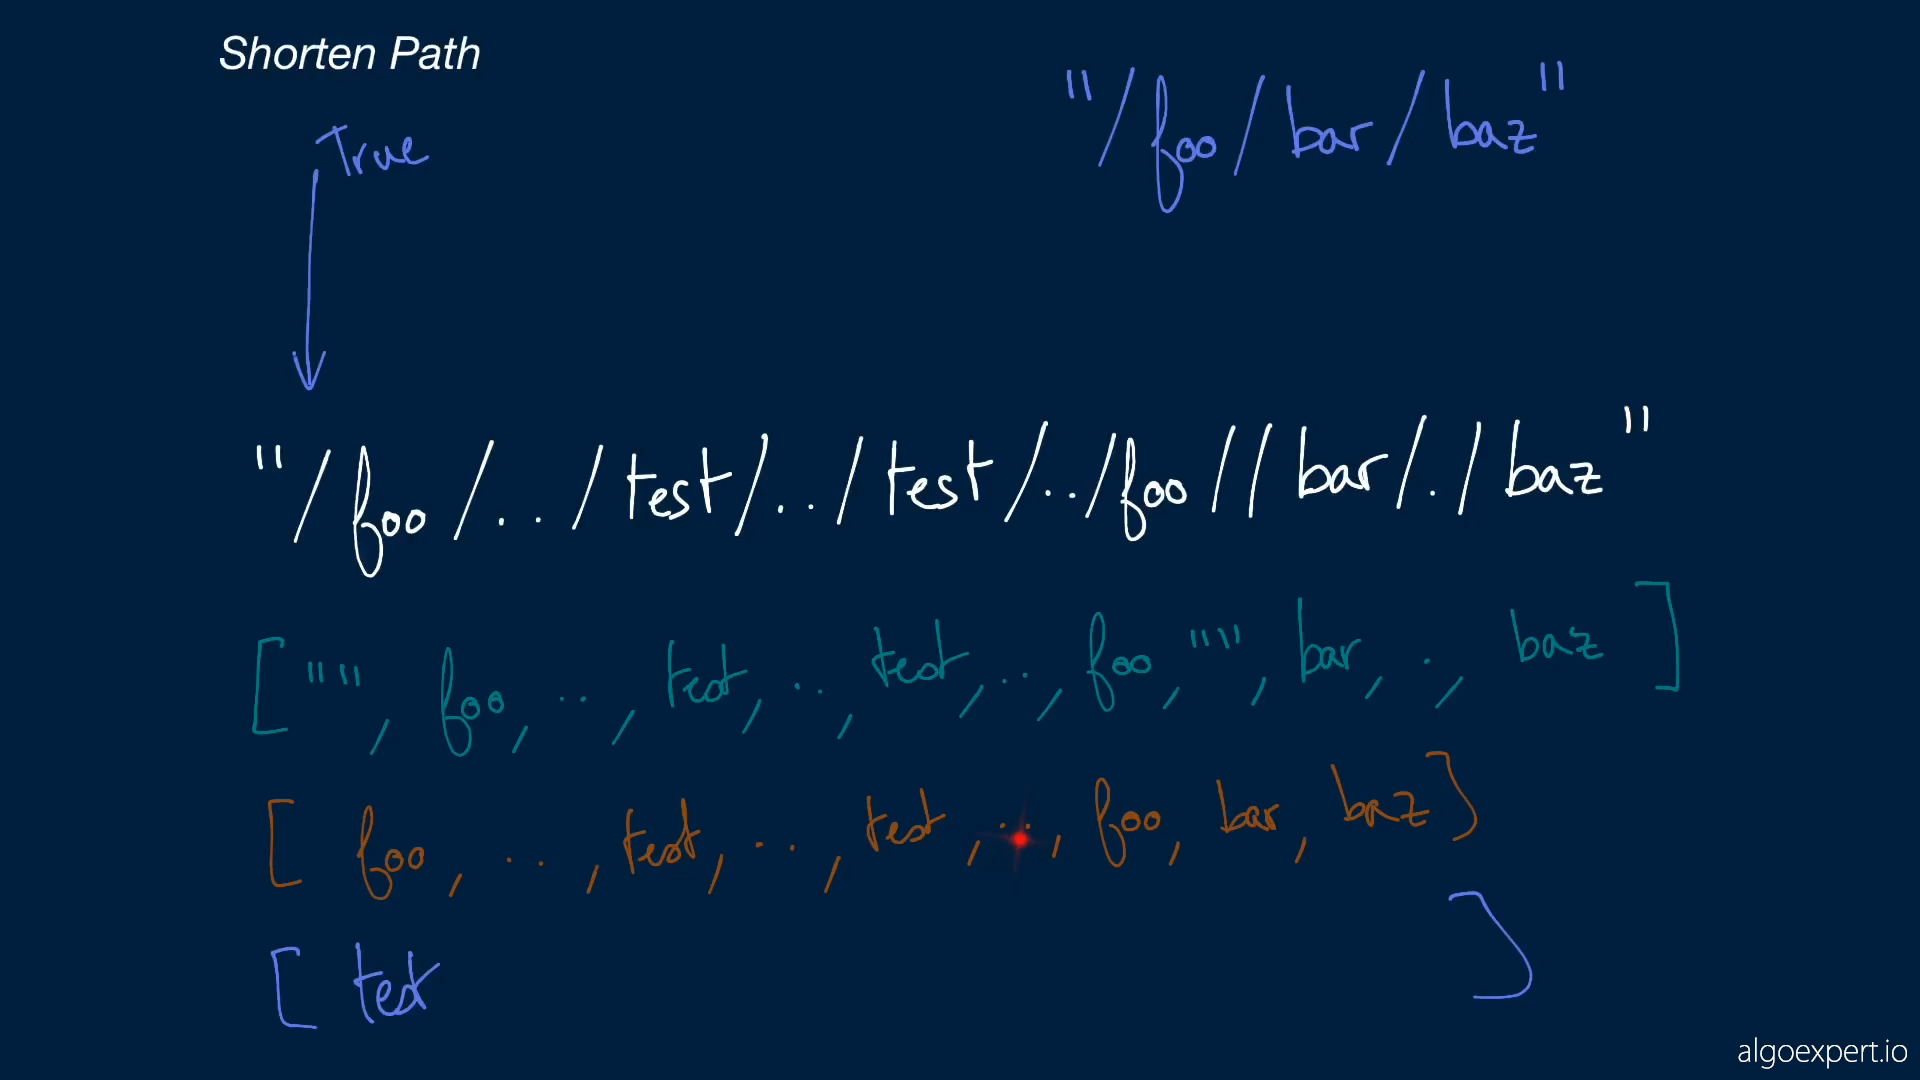 Shorten Path
"/foo/bar/baz"
True
"/foo/../test/../test/../foo//bar/./baz"
["", foo, .., test, .., test, .., foo, "", bar, ., baz]
[foo, .., test, .., test, .., foo, bar, baz]
[test ]
algoexpert.io